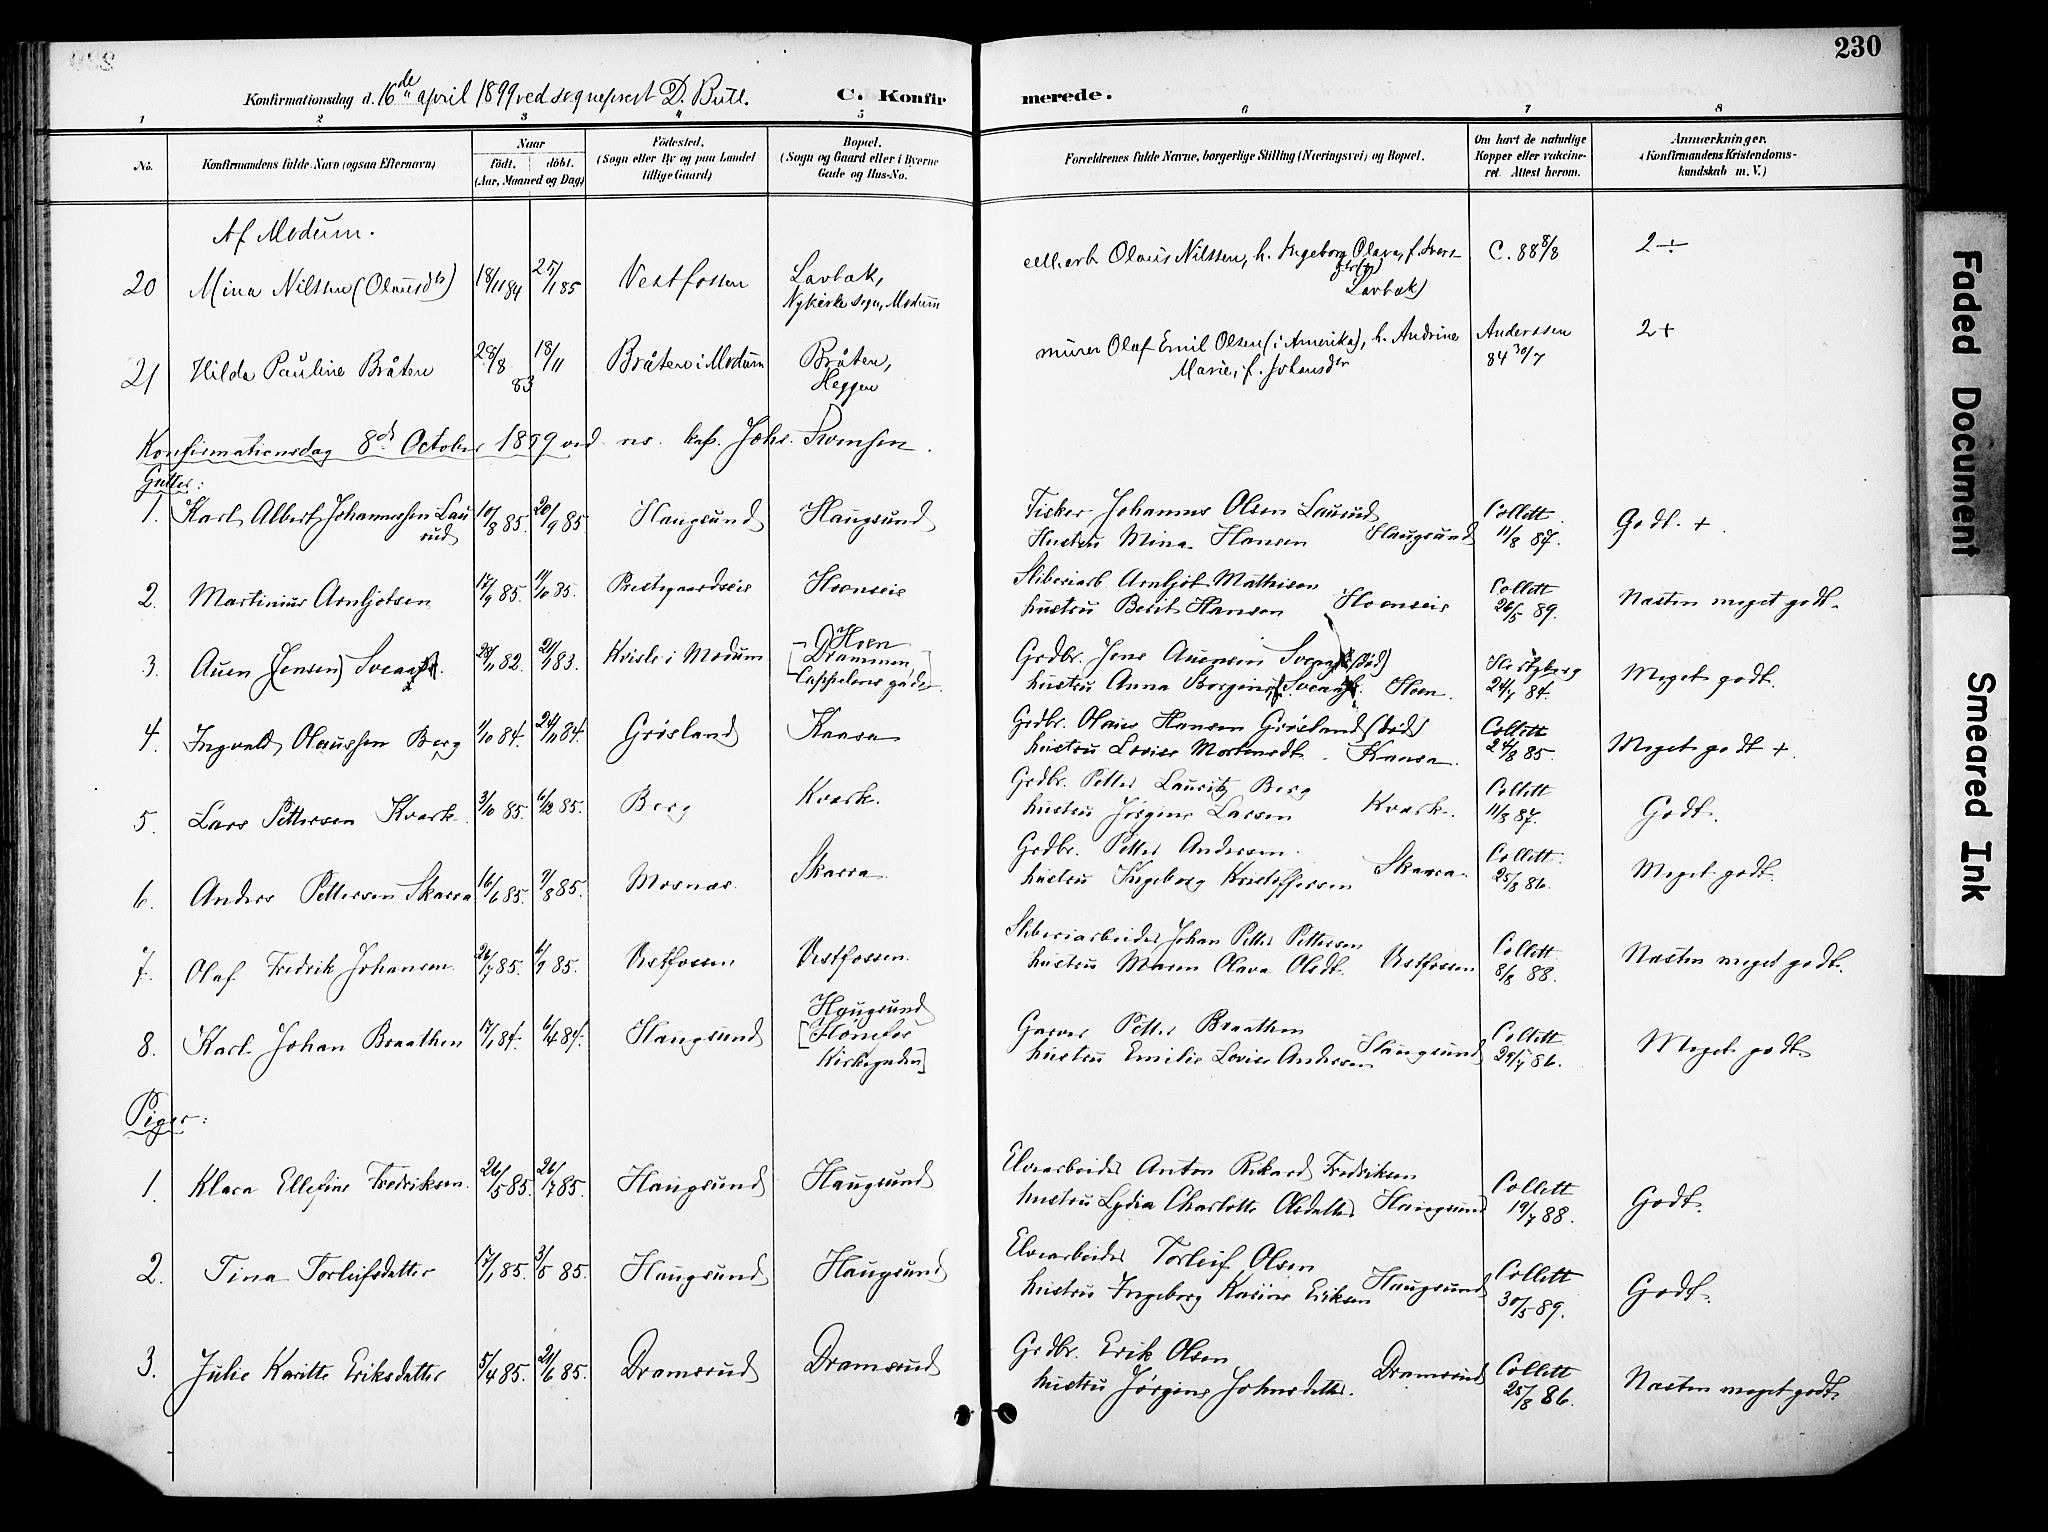 230
Konfirmationsdag d. 16de april 1899 ved sogneprest D. Bull.
C. Konfirmerede.
1 2 3 4 5 6 7 8
No.
Konfirmandens fulde Navn (ogsaa Efternavn)
Naar
födt. döbt.
(Aar, Maaned og Dag)
Födested.
(Sogn eller By og paa Landet
tillige Gaard)
Bopæl.
(Sogn og Gaard eller i Byerne
Gade og Hus-No.
Forældrenes fulde Navne, borgerlige Stilling (Næringsvei) og Bopæl.
Om havt de naturlige
Kopper eller vakcine-
ret. Attest herom.
Anmærkninger.
(Konfirmandens Kristendoms-
kundskab m. V.)
Af Modum.
20 Mina Nilssen (Olausdtr) 18/11 84 25/1 85 Vestfossen Lavbak,
Nykirke sogn, Modum
Olaus Nilssen, h. Ingeborg Olava, f. Ivers
Lavbak)
C. 88 8/8
2 ÷
21 Hilda Pauline Bråten 28/8 83 18/11 Bråten i Modum Bråten,
Heggen
murer Olaf Emil Olsen (i Amerika), h. Andrine
Marie, f. Johansdtr
Anderssen
84 30/7
2 +
Konfirmationsdag 8de October 1899 ved res. kap. Johs. Svensen.
Gutter:
1. Karl Albert Johannessen Lau
rud 10/8 85. 20/9 85. Haugsund Haugsund
Johannes Olsen Laurud
Hustru Mina Hansen Haugsund
Collett
11/8 87.
Godt. +.
2. Martinius Arnljotsen 17/9 85. 11/10 85. Prestgaardseie Hoenseie
Sliberiarb. Arnljot Mathisen
hustru Berit Hansen Hoenseie
Collett
26/5 89.
Næsten meget godt.
3. Auen (Jensen) 28/11 82. 21/1 83. Kvisle i Modum - Hoen
[Drammen,
Cappelens gade.]
Grdbr. Jens Auensen (død)
hustru Anna Borgine Hoen.
Hertzberg
24/7 84.
Meget godt.
4. Ingvald Olaussen Berg 1/10 84. 24/11 84. Grøsland Kaasa
Grdbr. Olaus Hansen Grøsland (død)
hustru Lovise Mortensdt. Kaasa.
Collett
24/8 85.
Meget godt +.
5. Lars Pettersen Kvark. 3/10 85. 6/12 85. Berg Kvark.
Grdbr. Petter Lauritz Berg
hustru Jørgine Larsen Kvark.
Collett
11/8 87.
Godt.
6. Anders Pettersen Skarra 16/6 85. 9/8 85. Mosnæs. Skarra.
Grdbr. Petter Andersen.
hustru Ingeborg Kristoffersen Skarra.
Collett.
25/8 86.
Meget godt.
7. Olaf Fredrik Johansen. 26/7 85. 6/9 85. Vestfossen Vestfossen.
Sliberiarbeider Johan Petter Pettersen
hustru Maren Olava Olsdt. Vestfossen
Collett
8/8 88.
Næsten meget godt.
8. Karl Johan Braathen 17/1 84. 6/4 84. Haugsund Haugsund
[Hønefos
Kirkegaden]
Garver Petter Braathen
hustru Emilie Lovise Andersen Haugsund
Collett
29/7 86.
Meget godt
Piger:
1. Klara Ellefine Fredriksen. 26/5 85. 26/7 85. Haugsund Haugsund
Elvearbeider Anton Rikard Fredriksen
hustru Lydia Charlotte Olsdatter Haugsund
Collett
19/7 88.
Godt.
2. Tina Torleifsdatter 17/1 85. 3/5 85. Haugsund Haugsund
Elvearbeider Torleif Olsen
hustru Ingeborg Karine Eriksen Haugsund
Collett
30/5 89.
Godt.
3. Julie Karitte Eriksdatter 5/4 85. 21/6 85. Dramsrud Dramsrud
Grdbr. Erik Olsen
hustru Jørgine Johnsdatter. Dramsrud
Collett
25/8 86.
Næsten meget godt.
Faded Document
Smeared Ink